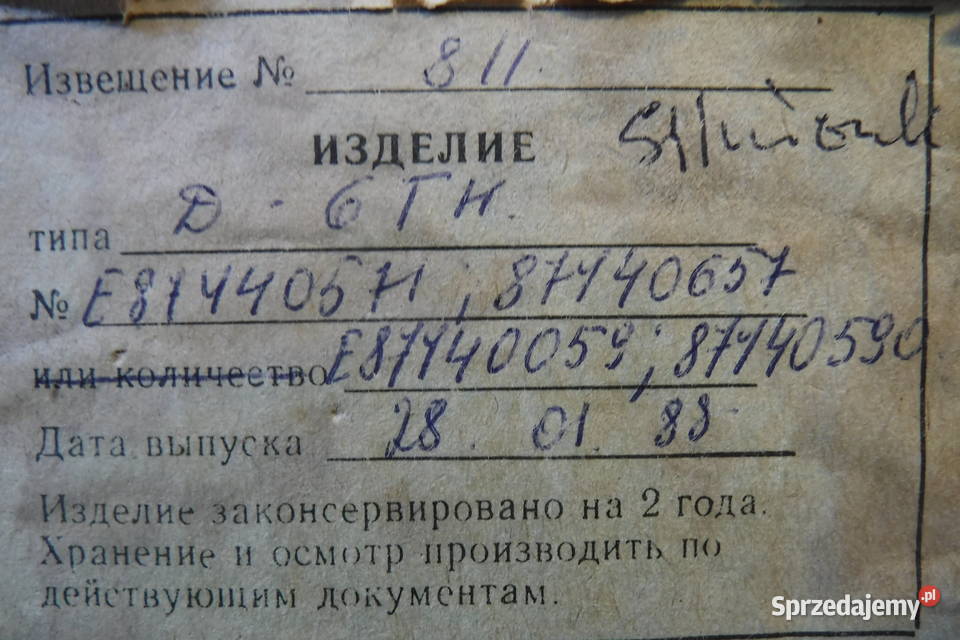 Извещение № 811.
ИЗДЕЛИЕ
типа Д - 6ТН.
№ Е87Ч40571; 87Ч40657
или количество Е87Ч40059; 87Ч40590
Дата выпуска 28. 01. 88
Изделие законсервировано на 2 года.
Хранение и осмотр производить по
действующим документам.
Sprzedajemy.pl